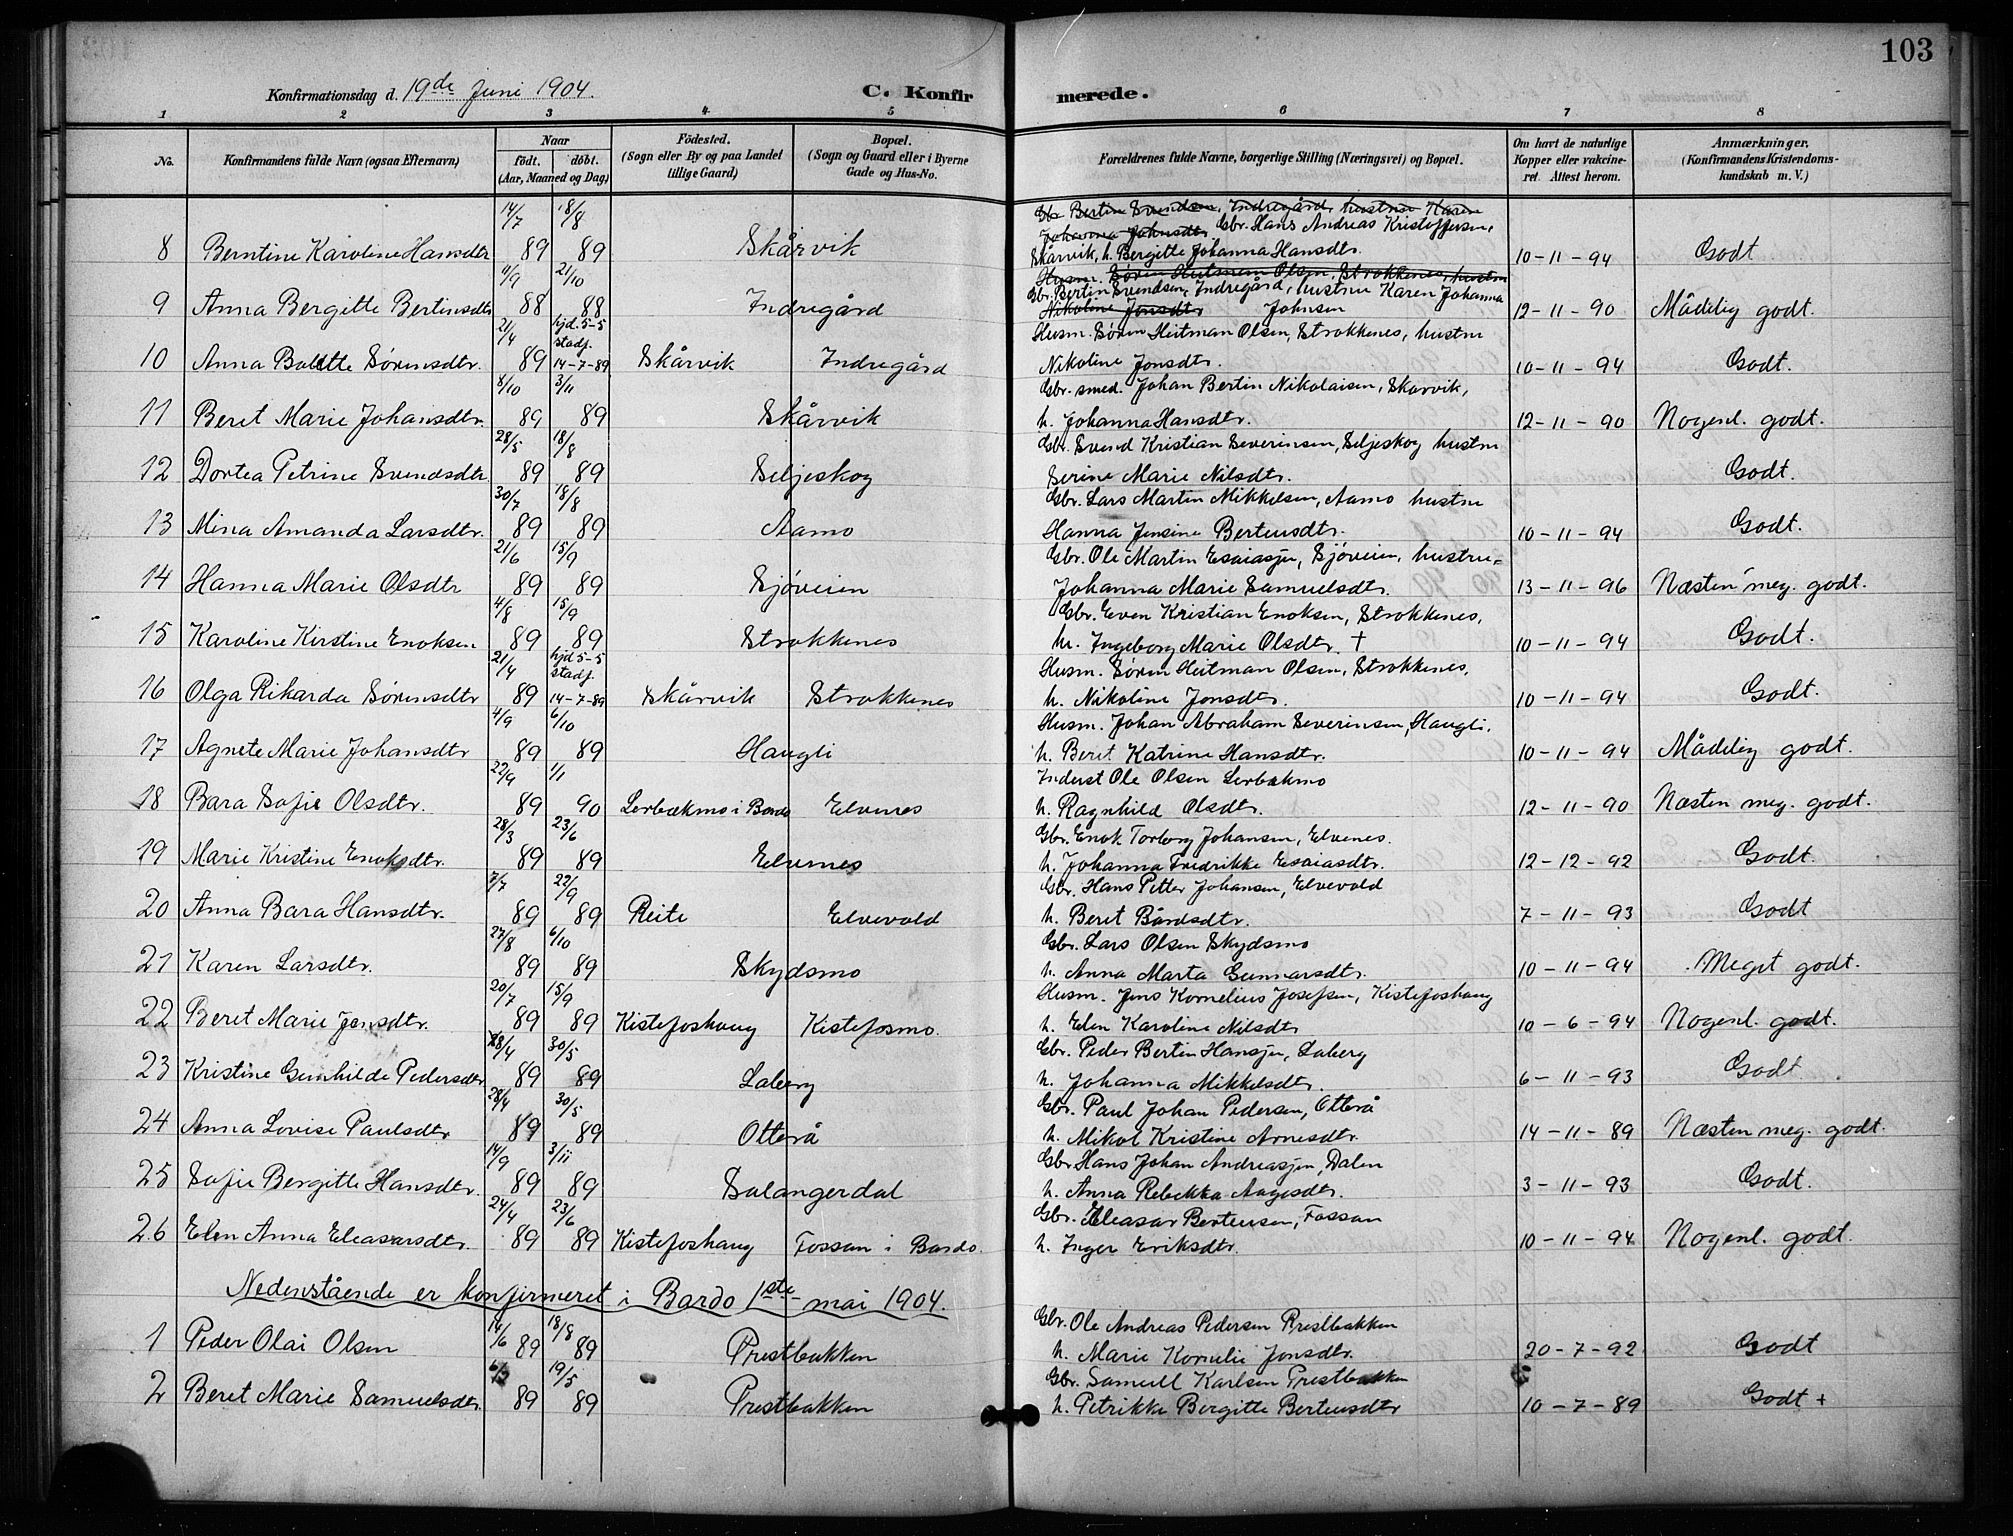 103
Konfirmationsdag d. 19de Juni 1904. C. Konfirmerede.
1 2 3 4 5 6 7 8
No. Konfirmandens fulde Navn (ogsaa Efternavn) Naar født. døbt. (Aar, Maaned og Dag) Fødested. (Sogn eller By og paa Landet tillige Gaard) Bopæl. (Sogn og Gaard eller i Byerne Gade og Hus-No. Forældrenes fulde Navne, borgerlige Stilling (Næringsvei) og Bopæl. Om havt de naturlige Kopper eller vakcineret. Attest herom. Anmærkninger. (Konfirmandens Kristendomskundskab m. V.)
Gbr Bertin Svendsen, Indregård, hustru Karen
14/7 18/8 Johanna Johnsdtr. Gbr. Hans Andreas Kristoffersen,
8 Berntine Karoline Hansdtr 89 89 Skårvik Skårvik, h. Bergitte Johanna Hansdtr. 10-11-94 Godt
11/9 21/10 Husm. Søren Heitman Olsen, Strokkenes, hustru
Gbr. Bertin Svendsen, Indregård, hustru Karen Johanna
9 Anna Bergitte Bertinsdtr 88 88 Indregård Nikoline Jonsdtr Johnsen 12-11-90 Mådelig godt.
21/4 hjd. 5-5 stadf. Husm. Søren Heitman Olsen, Strokkenes, hustru
10 Anna Bolette Sørensdtr. 89 14-7-89 Skårvik Indregård Nikoline Jonsdtr. 10-11-94 Godt.
8/10 3/11 Gbr. smed. Johan Bertin Nikolaisen, Skarvik,
11 Beret Marie Johansdtr. 89 89 Skårvik h. Johanna Hansdtr. 12-11-90 Nogenl. godt.
28/5 18/8 Gbr. Svend Kristian Severinsen, Seljeskog hustru
12 Dortea Petrine Svendsdtr 89 89 Seljeskog Serine Marie Nilsdtr. Godt.
30/7 18/8 Gbr. Lars Martin Mikkelsen, Aamo hustru
13 Mina Amanda Larsdtr. 89 89 Aamo Hanna Jensine Berteusdtr. 10-11-94 Godt.
21/6 15/9 Gbr. Ole Martin Esaiassen, Sjøveien, hustru-
14 Hanna Marie Olsdtr 89 89 Sjøveien Johanna Marie Samuelsdtr. 13-11-96 Næsten meg. godt.
4/8 15/9 Gbr. Even Kristian Enoksen, Strokkenes,
15 Karoline Kirstine Enoksen 89 89 Strokkenes h. Ingeborg Marie Olsdtr. † 10-11-94 Godt.
21/4 hjd 5-5 stadf. Husm. Søren Heitman Olsen, Strokkenes,
16 Olga Rikarda Sørensdtr 89 14-7-89 Skårvik Strokkenes h. Nikoline Jonsdtr. 10-11-94 Godt.
4/9 6/10 Husm. Johan Abraham Severinsen, Haugli,
17 Agnete Marie Johansdtr 89 89 Haugli h. Beret Katrine Hansdtr. 10-11-94 Mådelig godt.
22/9 1/1 Inderst Ole Olsen Lerbækmo
18 Bara Sofie Olsdtr. 89 90 Lerbækmo i Bardo Elvenes h. Ragnhild Olsdtr. 12-11-90 Næsten meg. godt.
28/3 23/6 Gbr. Enok Torberg Johansen, Elvenes.
19 Marie Kristine Enoksdtr. 89 89 Elvenes h. Johanna Fredrikke Esaiasdtr. 12-12-92 Godt.
7/7 22/9 Gbr. Hans Petter Johansen, Elvevold
20 Anna Bara Hansdtr. 89 89 Reite Elvevold h. Beret Bårdsdtr. 7-11-93 Godt
27/8 6/10 Gbr. Lars Olsen Skydsmo
21 Karen Larsdtr. 89 89 Skydsmo h. Anna Marta Gunnarsdtr. 10-11-94 Meget godt.
20/7 15/9 Husm. Jens Kornelius Josefsen, Kistefoshaug
22 Beret Marie Jensdtr. 89 89 Kistefoshaug Kistefosmo. h. Elen Karoline Nilsdtr 10-6-94 Nogenl. godt.
28/4 30/5 Gbr. Peder Bertin Hansen, Laberg
23 Kristine Gunhilde Pedersdtr 89 89 Laberg h. Johanna Mikkelsdtr. 6-11-93 Godt
28/4 30/5 Gbr. Paul Johan Pedersen, Otterå
24 Anna Lovise Paulsdtr 89 89 Otterå h. Mikol Kristine Arnesdtr. 14-11-89 Næsten meg. godt.
14/9 3/11 Gbr. Hans Johan Andreassen, Dalen
25 Sofie Bergitte Hansdtr. 89 89 Salangerdal h. Anna Rebekka Aagesdtr. 3-11-93 Godt.
24/4 23/6 Gbr. Eleasar Berteusen, Fossan
26 Elen Anna Eleasarsdtr. 89 89 Kistefoshaug Fossan i Bardo. h. Inger Eriksdtr. 10-11-94 Nogenl. godt.
Nedenstående er konfirmeret i Bardo 1ste mai 1904.
14/6 18/8 Gbr. Ole Andreas Pedersen Prestbakken
1 Peder Olai Olsen 89 89 Prestbakken h. Marie Kornelie Jonsdtr. 20-7-92 Godt
19/5 Gbr. Samuel Karlsen Prestbakken
2 Beret Marie Samuelsdtr. 89 89 Prestbakken h. Petrikke Bergitte Berteusdtr 10-7-89 Godt +